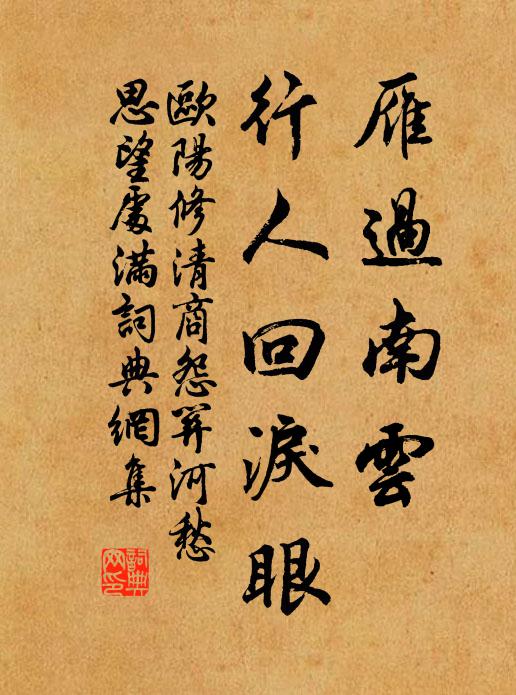 雁過南雲
行人回淚眼
歐陽修清商怨關河愁
思望處滿詞典網集
詞典網印